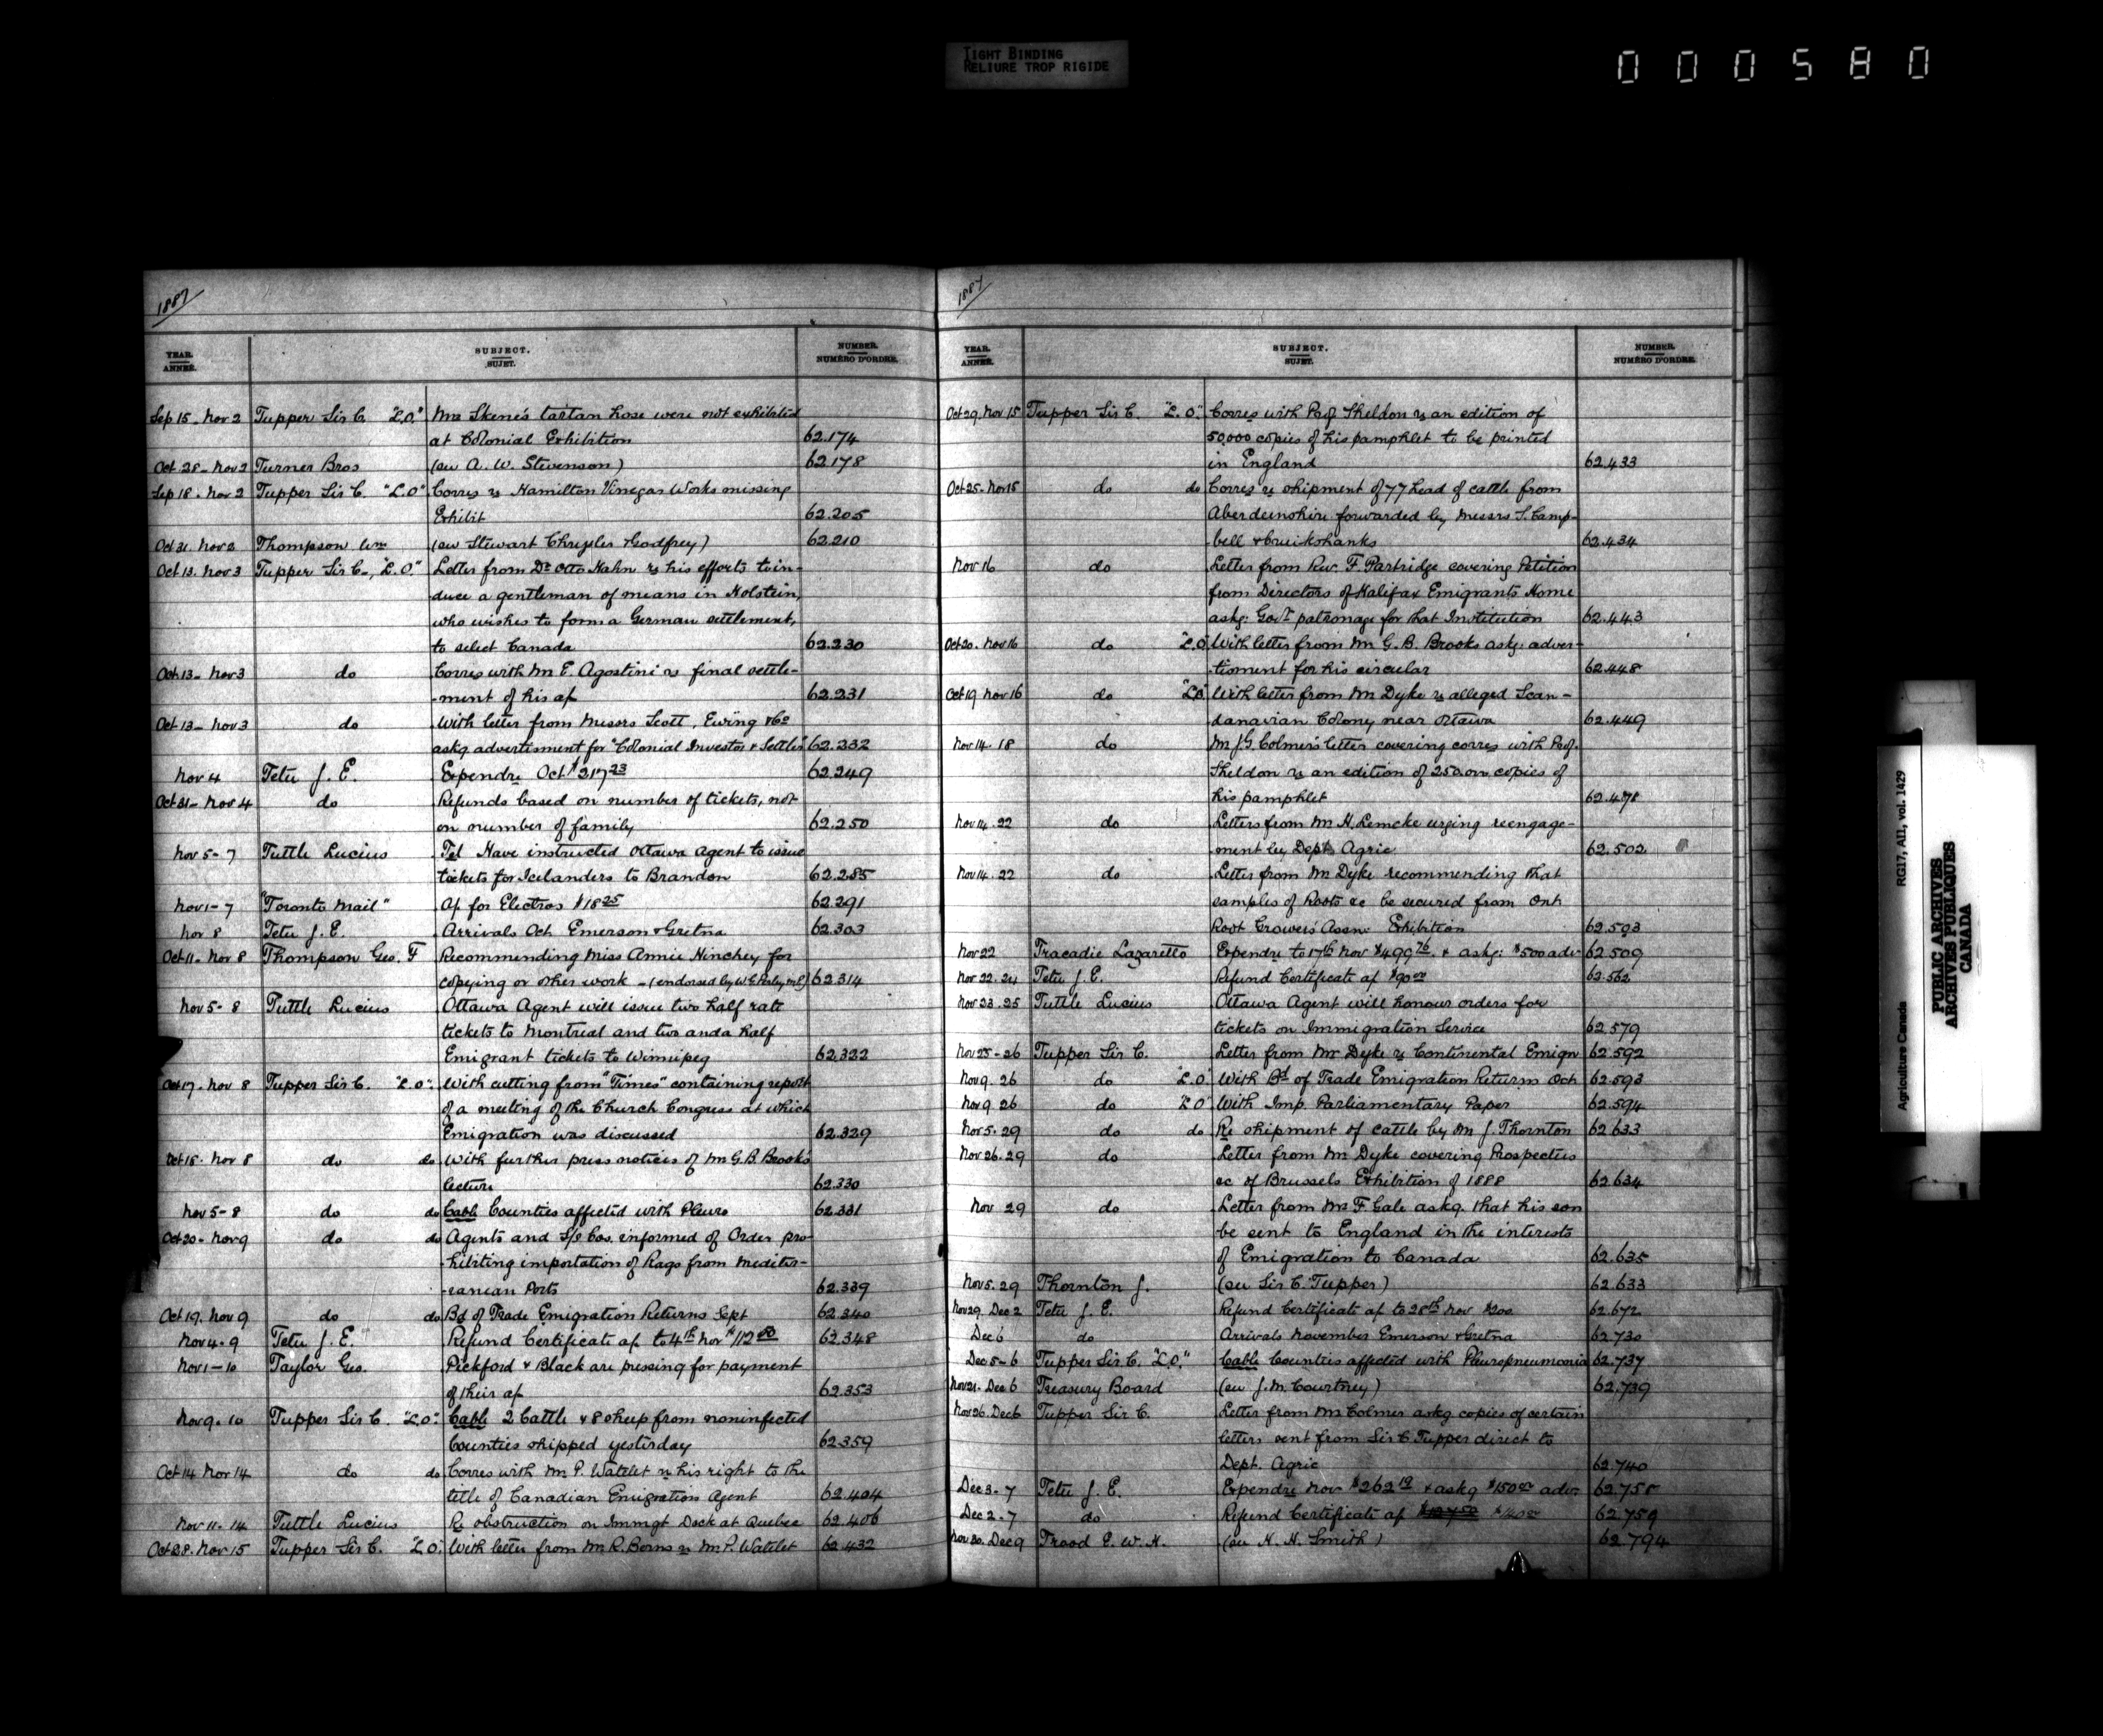 TIGHT BINDING
RELIURE TROP RIGIDE
000580
1887
YEAR. ANNÉE. SUBJECT. SUJET. NUMBER. NUMÉRO D'ORDRE.
Sep 15 - Nov 2 Tupper Sir C. "L.O." Mrs Skene's tartan hose were not exhibited
at Colonial Exhibition 62.174
Oct 28 - Nov 2 Turner Bros (see A. W. Stevenson) 62.178
Sep 18 - Nov 2 Tupper Sir C. "L.O" Corres re Hamilton Vinegar Works missing
Exhibit 62.205
Oct 31. Nov 2 Thompson Wm (see Stewart Chrysler & Godfrey) 62.210
Oct 13. Nov 3 Tupper Sir C., "L.O." Letter from Dr Otto Hahn re his efforts to in-
duce a gentleman of means in Holstein,
who wishes to form a German settlement,
to select Canada 62.230
Oct 13 - Nov 3 do Corres with Mr E. Agostini re final settle-
-ment of his a/c 62.231
Oct 13 - Nov 3 do With letter from Messrs Scott, Ewing & Co
askg advertisment for "Colonial Investor & Settler" 62.232
Nov 4 Tetu J. E. Expendre Oct $217 23 62.249
Oct 31 - Nov 4 do Refunds based on number of tickets, not
on number of family 62.250
Nov 5 - 7 Tuttle Lucius Tel Have instructed Ottawa Agent to issue
tickets for Icelanders to Brandon 62.285
Nov 1 - 7 "Toronto Mail" a/c for Electros $18 25 62.291
Nov 8 Tetu J. E. Arrivals Oct Emerson & Gretna 62.303
Oct 11 - Nov 8 Thompson Geo. F Recommending Miss Annie Hinchey for
copying or other work - (endorsed by W. G. Perley, M.P.) 62.314
Nov 5 - 8 Tuttle Lucius Ottawa Agent will issue two half rate
tickets to Montreal and two and a half
Emigrant tickets to Winnipeg 62.322
Oct 17 - Nov 8 Tupper Sir C. "L.O". With cutting from "Times" containing report
of a meeting of the Church Congress at which
Emigration was discussed 62.329
Oct 18 - Nov 8 do do With further press notices of Mr G. B. Brooks
lecture 62.330
Nov 5 - 8 do do Cable Counties affected with Pleuro 62.331
Oct 20 - Nov 9 do do Agents and S/S Cos. informed of Order pro-
-hibiting importation of Rags from Mediter-
-ranean Ports 62.339
Oct 19. Nov 9 do do Bd of Trade Emigration Returns Sept 62.340
Nov 4 - 9 Tetu J. E. Refund Certificate a/c to 4th Nov $112 50 62.348
Nov 1 - 10 Taylor Geo. Pickford & Black are pressing for payment
of their a/c 62.353
Nov 9 - 10 Tupper Sir C. "L.O". Cable 2 Cattle & 8 sheep from noninfected
Counties shipped yesterday 62.359
Oct 14 Nov 14 do do Corres with Mr P. Watelet re his right to the
title of Canadian Emigration Agent 62.404
Nov 11 - 14 Tuttle Lucius Re obstruction on Immgt Dock at Quebec 62.406
Oct 28. Nov 15 Tupper Sir C. "L.O". With letter from Mr R. Berns re Mr P. Watelet 62.432
1887
YEAR. ANNÉE. SUBJECT. SUJET. NUMBER. NUMÉRO D'ORDRE.
Oct 29. Nov 15 Tupper Sir C. "L.O". Corres with Prof. Sheldon re an edition of
50,000 copies of his pamphlet to be printed
in England 62.433
Oct 25 - Nov 15 do do Corres re shipment of 77 head of cattle from
Aberdeenshire forwarded by Messrs S. Camp-
bell & Cruikshanks 62.434
Nov 16 do Letter from Rev. F. Partridge covering Petition
from Directors of Halifax Emigrants Home
askg: Govt patronage for that Institution 62.443
Oct 20. Nov 16 do "L.O. With letter from Mr G. B. Brooks askg: adver-
-tisment for his circular 62.448
Oct 19 Nov 16 do "L.O. With letter from Mr Dyke re alleged Scan-
danavian Colony near Ottawa 62.449
Nov 14. 18 do Mr J. G. Colmer's letter covering corres with Prof.
Sheldon re an edition of 250.000 copies of
his pamphlet 62.478
Nov 14. 22 do Letters from Mr H. Lemcke urging reengage-
ment by Dept Agric 62.502
Nov 14. 22 do Letter from Mr Dyke recommending that
samples of Roots &c be secured from Ont
Root Grower's Assn Exhibition 62.503
Nov 22 Tracadie Lazaretto Expendre to 17th Nov $499 76. & askg: $500 adv- 62.509
Nov. 22. 24 Tetu J. E. Refund Certificate a/c $90 00 62.562
Nov 23. 25 Tuttle Lucius Ottawa Agent will honour orders for
tickets on Immigration Service 62.579
Nov 25 - 26 Tupper Sir C. Letter from Mr Dyke re Continental Emign 62.592
Nov 9. 26 do "L.O" With Bd of Trade Emigration Returns Oct 62.593
Nov 9. 26 do "L.O" With Imp. Parliamentary Paper 62.594
Nov 5. 29 do do Re shipment of cattle by Mr J. Thornton 62 633
Nov 26. 29 do Letter from Mr Dyke covering Prospectus
&c of Brussels Exhibition of 1888 62.634
Nov 29 do Letter from Mr F Gale askg. that his son
be sent to England in the interests
of Emigration to Canada 62.635
Nov 5. 29 Thornton J. (see Sir C. Tupper) 62.633
Nov 29. Dec 2 Tetu J. E. Refund Certificate a/c to 28th Nov $200 62.672
Dec 6 do Arrivals November Emerson & Gretna 62.730
Dec 5 - 6 Tupper Sir C. "L.O." Cable Counties affected with Pleuropneumonia 62.737
Nov 21 - Dec 6 Treasury Board (see J. M. Courtney) 62.739
Nov 26. Dec 6 Tupper Sir C. Letter from Mr Colmer askg copies of certain
letters sent from Sir C Tupper direct to
Dept. Agric 62.740
Dec 3 - 7 Tetu J. E. Expendre Nov $262 19 & askg $150 00 adv. 62.758
Dec 2 - 7 do Refund Certificate a/c 62.759
Nov 30. Dec 9 Trood E. W. H. (see H. H. Smith) 62.794
Agriculture Canada RG17, AII, vol. 1429
PUBLIC ARCHIVES
ARCHIVES PUBLIQUES
CANADA